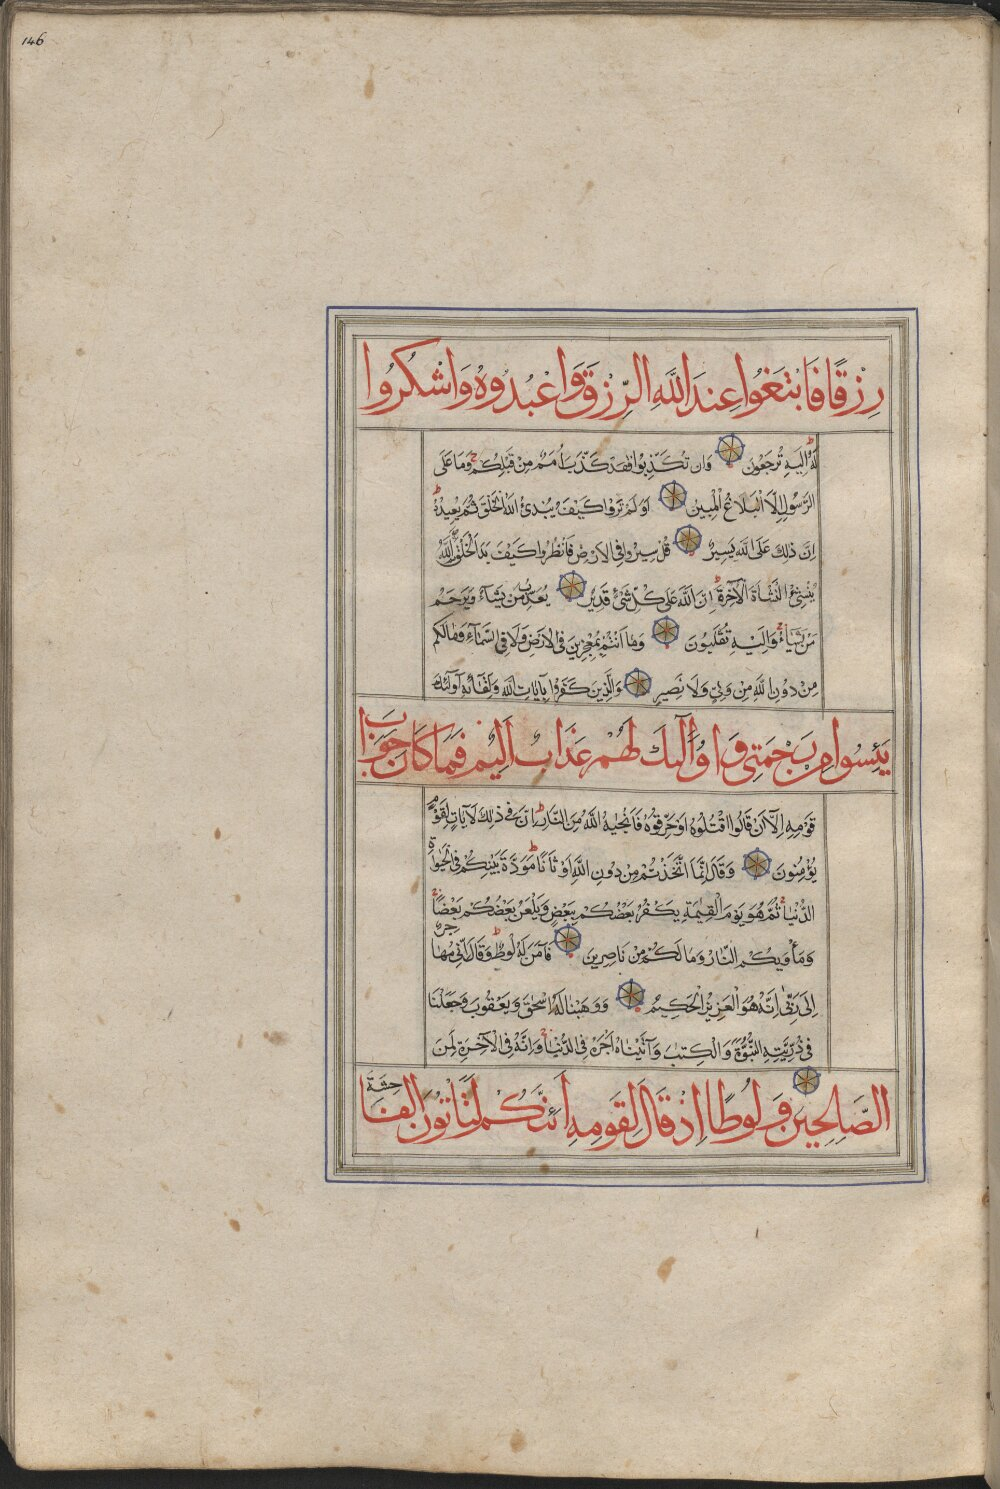 146
رِزْقًا فَابْتَغُوا عِندَ اللَّهِ الرِّزْقَ وَاعْبُدُوهُ وَاشْكُرُوا
لَهُ اِلَيْهِ تُرْجَعُونَ وَاِن تُكَذِّبُوا فَقَدْ كَذَّبَ اُمَمٌ مِنْ قَبْلِكُمْ وَمَا عَلَى
الرَّسُولِ اِلَّا الْبَلَاغُ الْمُبِينُ اَوَلَمْ يَرَوْا كَيْفَ يُبْدِئُ اللَّهُ الْخَلْقَ ثُمَّ يُعِيدُهُ
اِنَّ ذٰلِكَ عَلَى اللَّهِ يَسِيرٌ قُلْ سِيرُوا فِى الْاَرْضِ فَانْظُرُوا كَيْفَ بَدَاَ الْخَلْقَ ثُمَّ اللَّهُ
يُنْشِئُ النَّشْاَةَ الْآخِرَةَ اِنَّ اللَّهَ عَلٰى كُلِّ شَىْءٍ قَدِيرٌ يُعَذِّبُ مَنْ يَشَآءُ وَيَرْحَمُ
مَنْ يَشَآءُ وَاِلَيْهِ تُقْلَبُونَ وَمَا اَنْتُمْ بِمُعْجِزِينَ فِى الْاَرْضِ وَلَا فِى السَّمَآءِ وَمَا لَكُمْ
مِنْ دُونِ اللَّهِ مِنْ وَلِىٍّ وَلَا نَصِيرٍ وَالَّذِينَ كَفَرُوا بِآيَاتِ اللَّهِ وَلِقَآئِهِ اُولٰئِكَ
يَئِسُوا مِن رَحْمَتِى وَاُولٰٓئِكَ لَهُمْ عَذَابٌ اَلِيمٌ فَمَا كَانَ جَوَابَ
قَوْمِهِ اِلَّا اَنْ قَالُوا اقْتُلُوهُ اَوْ حَرِّقُوهُ فَاَنْجٰيهُ اللَّهُ مِنَ النَّارِ اِنَّ فِى ذٰلِكَ لَآيَاتٍ لِقَوْمٍ
يُؤْمِنُونَ وَقَالَ اِنَّمَا اتَّخَذْتُمْ مِنْ دُونِ اللَّهِ اَوْثَانًا مَوَدَّةَ بَيْنِكُمْ فِى الْحَيٰوةِ
الدُّنْيَا ثُمَّ هُوَ يَوْمَ الْقِيٰمَةِ يَكْفُرُ بَعْضُكُمْ بِبَعْضٍ وَيَلْعَنُ بَعْضُكُمْ بَعْضًا
وَمَاْوٰيكُمُ النَّارُ وَمَا لَكُمْ مِنْ نَاصِرِينَ فَآمَنَ لَهُ لُوطٌ وَقَالَ اِنِّى مُهَاجِرٌ
اِلٰى رَبِّى اِنَّهُ هُوَ الْعَزِيزُ الْحَكِيمُ وَوَهَبْنَا لَهُ اِسْحٰقَ وَيَعْقُوبَ وَجَعَلْنَا
فِى ذُرِّيَّتِهِ النُّبُوَّةَ وَالْكِتٰبَ وَآتَيْنَاهُ اَجْرَهُ فِى الدُّنْيَا وَاِنَّهُ فِى الْآخِرَةِ لَمِنَ
الصَّالِحِينَ وَلُوطًا اِذْ قَالَ لِقَوْمِهِ اَئِنَّكُمْ لَتَاْتُونَ الْفَاحِشَةَ